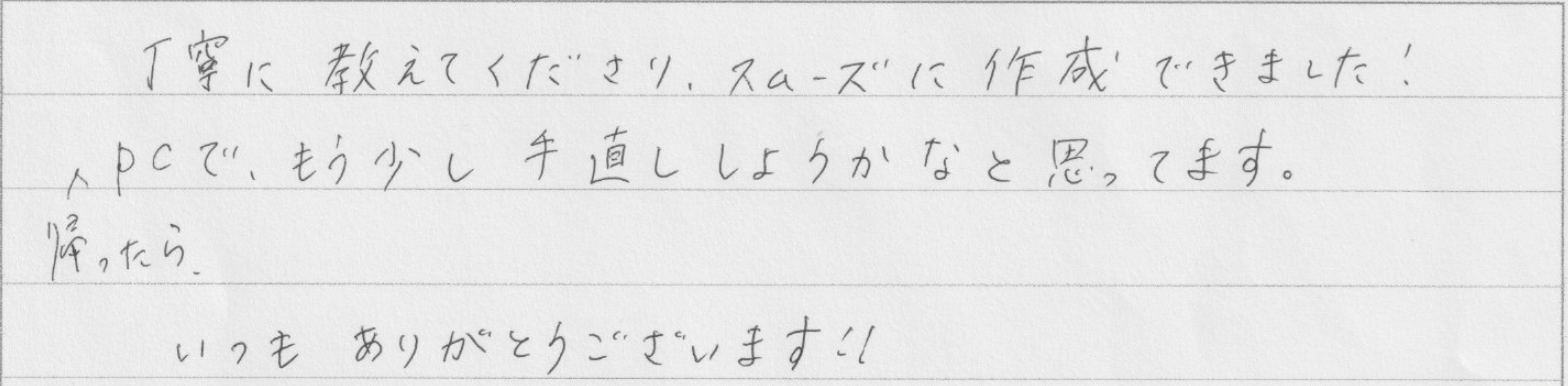 丁寧に教えてくださり、スムーズに作成できました!
PCで、もう少し手直ししようかなと思ってます。
帰ったら、
いつもありがとうございます!!